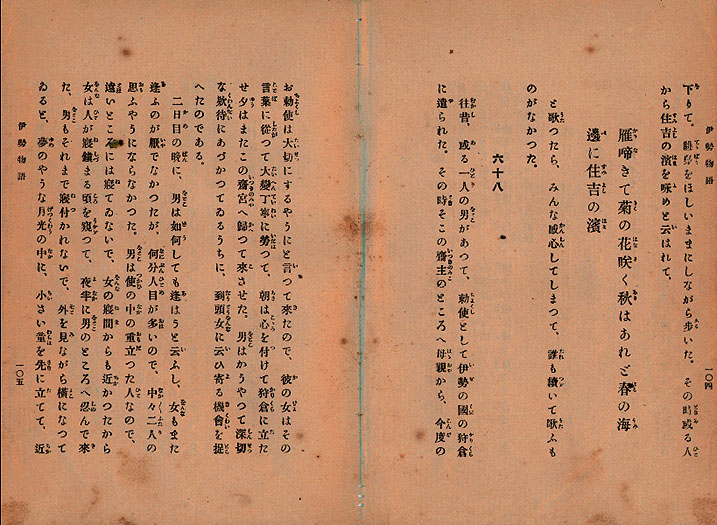 下りて。眺望をほしいままにしながら歩いた。その時或る人
から住吉の濱を咏めと云はれて、
雁啼きて菊の花咲く秋はあれど春の海
邊に住吉の濱
と歌つたら、みんな感心してしまつて、誰も續いて歌ふも
のがなかつた。
六十八
往昔、或る一人の男があつて、勅使として伊勢の國の狩倉
に遣られた。その時そこの齋主のところへ母親から、今度の
伊勢物語
一〇四
お勅使は大切にするやうにと言つて來たので、彼の女はその
言葉に從つて大變丁寧に勞つて、朝は心を付けて狩倉に立た
せ夕はまたこの齋宮へ歸つて來させた。男はかうやつて深切
な欵待にあづかつてゐるうちに、到頭女に云ひ寄る機會を捉
へたのである。
二日目の晩に、男は如何しても逢はうと云ふし、女もまた
逢ふのが厭でなかつたが、何分人目が多いので、中々二人の
思ふやうにならなかつた。男は使の中の重立つた人なので、
遠いところには寢てゐないで、女の寢間からも近かつたから
女は人が寢鎭まる頃を窺つて、夜半に男のところへ忍んで來
た、男もそれまで寢付かれないで、外を見ながら橫になつて
ゐると、夢のやうな月光の中に、小さい童を先に立てて、近
伊勢物語
一〇五